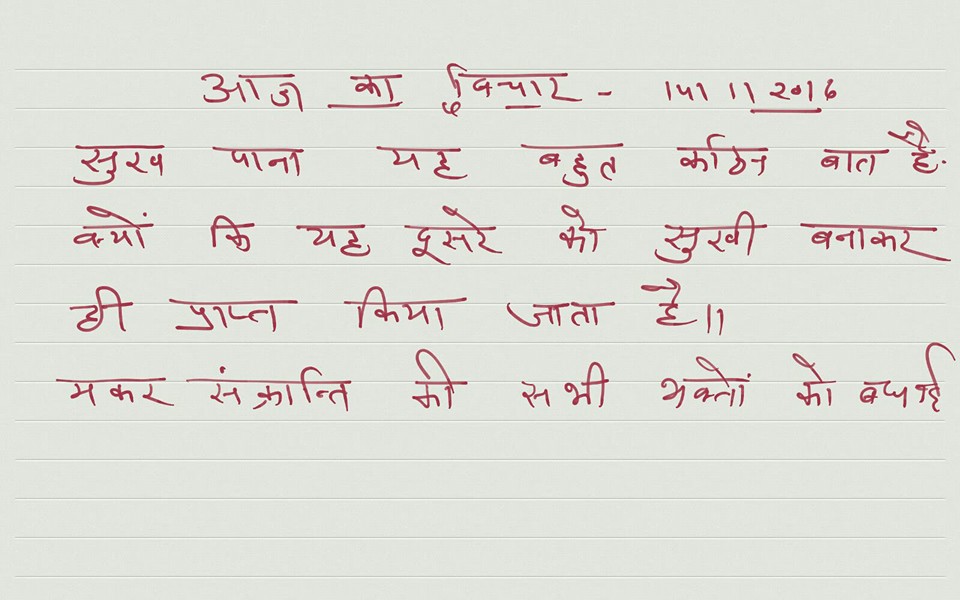 आज का विचार - 15।1।2016
सुख पाना यह बहुत कठिन बात है.
क्यों कि यह दूसरे को सुखी बनाकर
ही प्राप्त किया जाता है।।
मकर संक्रान्ति की सभी भक्तों को बधाई